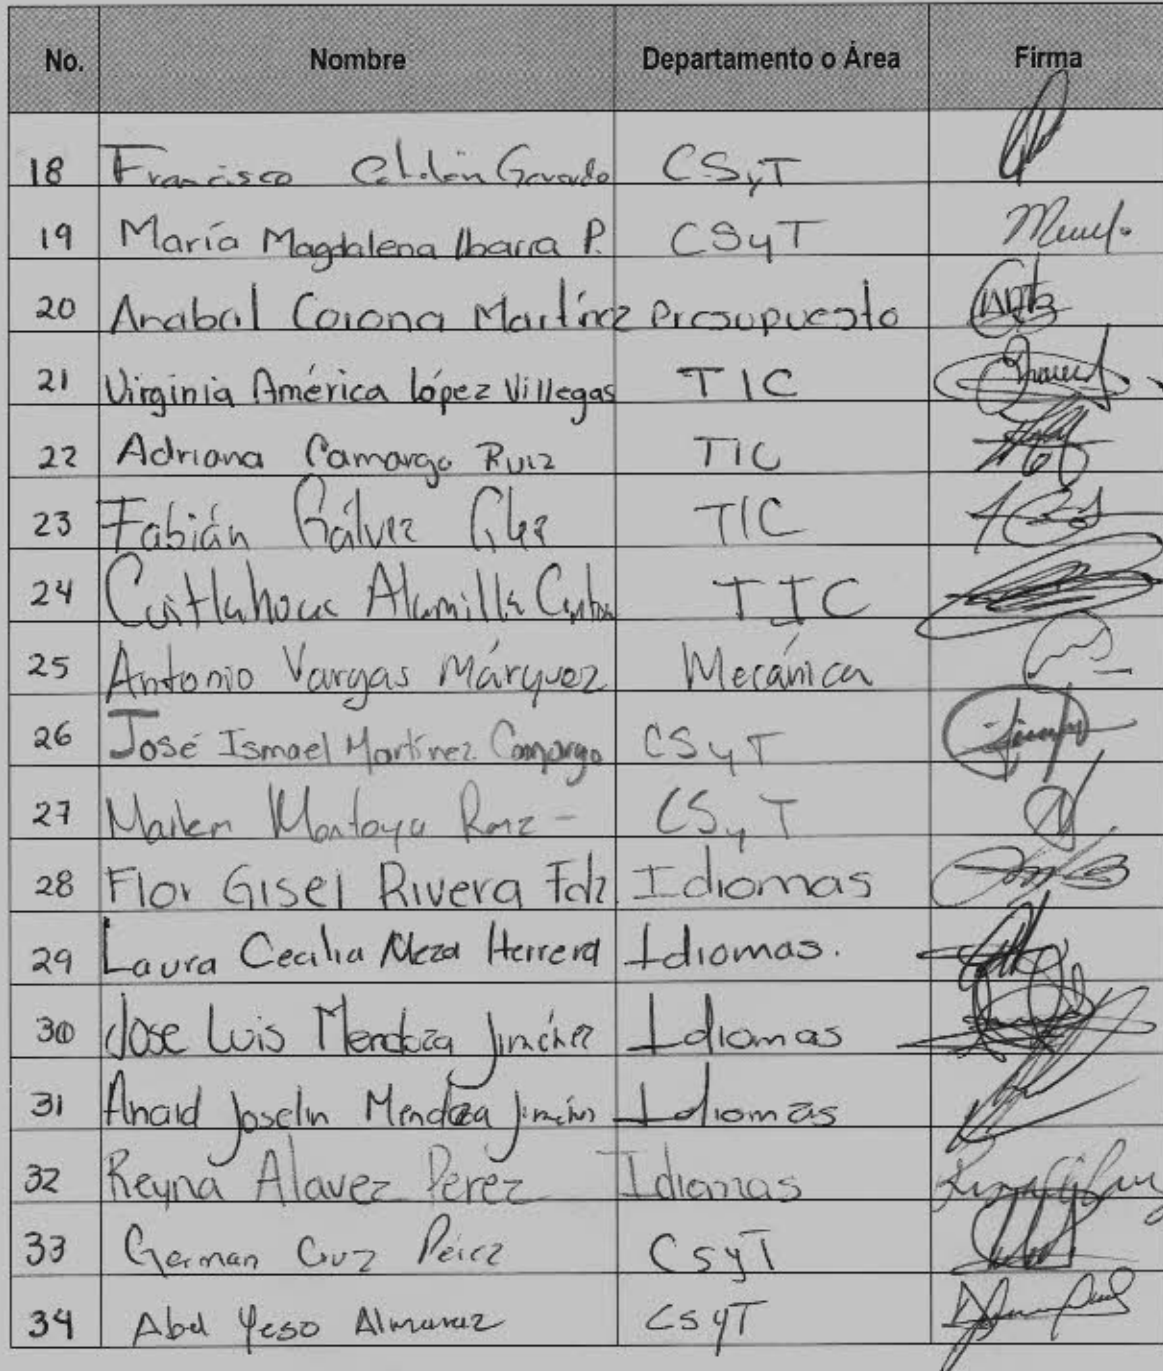 No. Nombre Departamento o Área Firma
18 Francisco Catalán Gerardo CSyT
19 María Magdalena Ibarra P. CSyT
20 Anabel Corona Martínez Presupuesto
21 Virginia América López Villegas TIC
22 Adriana Camargo Ruiz TIC
23 Fabián Gálvez Glez TIC
24 Cuitlahuac Alamilla TIC
25 Antonio Vargas Márquez Mecánica
26 José Ismael Martínez Camargo CSyT
27 Marlem Montoya CSyT
28 Flor Gisel Rivera Fdz Idiomas
29 Laura Cecilia Meza Herrera Idiomas.
30 Jose Luis Mendoza Jiménez Idiomas
31 Anaid Joselin Mendoza Jiménez Idiomas
32 Reyna Alavez Perez Idiomas
33 German Cruz Pérez CsyT
34 Abel Yeso Almaraz CsyT